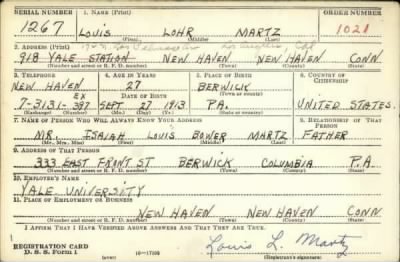 SERIAL NUMBER 1. NAME (Print) ORDER NUMBER
1267 LOUIS LOHR MARTZ 1021
(First) (Middle) (Last)
2. ADDRESS (Print) Los Angeles Cal
918 YALE STATION NEW HAVEN NEW HAVEN CONN
(Number and street or R. F. D. number) (Town) (County) (State)
3. TELEPHONE 4. AGE IN YEARS 5. PLACE OF BIRTH 6. COUNTRY OF CITIZENSHIP
NEW HAVEN 27 BERWICK
EX DATE OF BIRTH (Town or county)
7-3131-387 SEPT 27 1913 PA. UNITED STATES
(Exchange) (Number) (Mo.) (Day) (Yr.) (State or country)
7. NAME OF PERSON WHO WILL ALWAYS KNOW YOUR ADDRESS 8. RELATIONSHIP OF THAT PERSON
MR. ISAIAH LOUIS BOWER MARTZ FATHER
(Mr., Mrs., Miss) (First) (Middle) (Last)
9. ADDRESS OF THAT PERSON
333 EAST FRONT ST BERWICK COLUMBIA P.A.
(Number and street or R. F. D. number) (Town) (County) (State)
10. EMPLOYER'S NAME
YALE UNIVERSITY
11. PLACE OF EMPLOYMENT OR BUSINESS
NEW HAVEN NEW HAVEN CONN
(Number and street or R. F. D. number) (Town) (County) (State)
I AFFIRM THAT I HAVE VERIFIED ABOVE ANSWERS AND THAT THEY ARE TRUE.
REGISTRATION CARD
D. S. S. Form 1 16-17105 Louis L. Martz
(Registrant's signature)